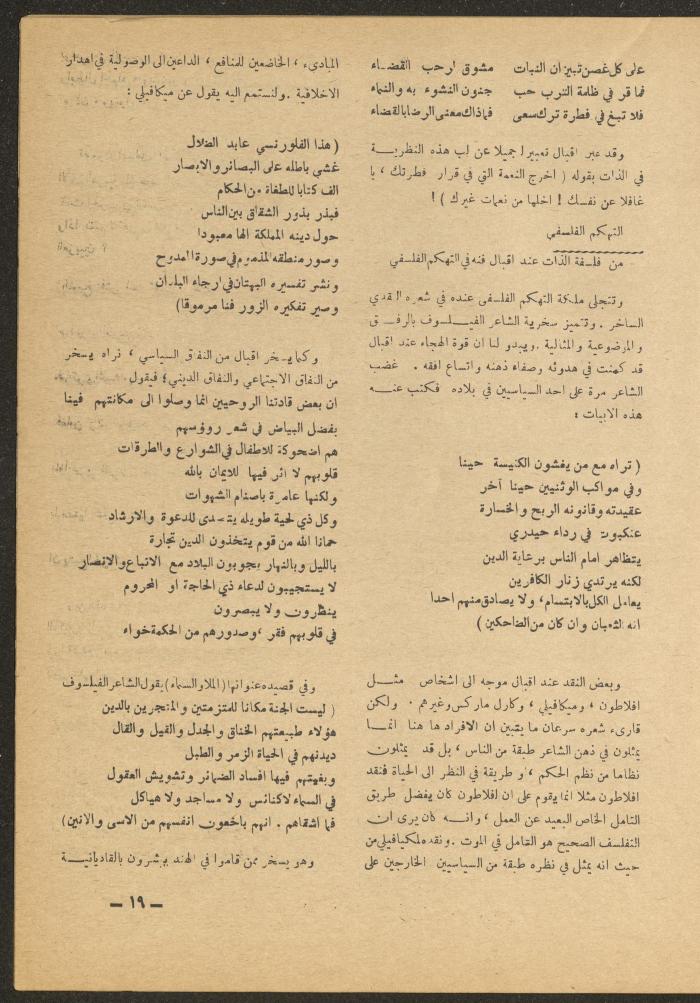 على كل غصن تبيز ان النبات مشوق لرحب القضاء
فما قر في ظلمة الترب حب جنون النشوء به والنماء
فلا تبغ في فطرة ترك سعى فماذاك معنى الرضا بالقضاء
وقد عبر اقبال تعبيرا جميلا عن لب هذه النظرية
في الذات بقوله ( اخرج النغمة التي في قرار فطرتك ، يا
غافلا عن نفسك ! اخلها من نغمات غيرك ) !
التهكم الفلسفي
من فلسفة الذات عند اقبال فنه في التهكم الفلسفي
وتتجلى ملكة التهكم الفلسفي عنده في شعره النقدي
الساخر . وتتميز سخرية الشاعر الفيلسوف بالرفق
والموضوعية والمثالية . ويبدو لنا ان قوة الهجاء عند اقبال
قد كمنت في هدوئه وصفاء ذهنه واتساع افقه . غضب
الشاعر مرة على احد السياسيين في بلاده فكتب عنه
هذه الابيات :
( تراه مع من يغشون الكنيسة حينا
وفي مواكب الوثنيين حينا آخر
عقيدته وقانونه الربح والخسارة
عنكبوت في رداء حيدري
يتظاهر امام الناس برعاية الدين
لكنه يرتدي زنار الكافرين
يعامل الكل بالابتسام ، ولا يصادق منهم احدا
انه الثعبان وان كان من الضاحكين )
وبعض النقد عند اقبال موجه الى اشخاص مثل
افلاطون ، وميكافيلي ، وكارل ماركس وغيرهم . ولكن
قارىء شعره سرعان ما يتبين ان الافراد ها هنا انما
يمثلون في ذهن الشاعر طبقة من الناس ، بل قد يمثلون
نظاما من نظم الحكم ، او طريقة في النظر الى الحياة فنقد
افلاطون مثلا انما يقوم على ان افلاطون كان يفضل طريق
التامل الخاص البعيد عن العمل ، وانه كان يرى ان
التفلسف الصحيح هو التامل في الموت . ونقده لمكيافيلي من
حيث انه يمثل في نظره طبقة من السياسيين الخارجين على
المبادىء ، الخاضعين للمنافع ، الداعين الى الوصولية في اهدار
الاخلاقية . ولنستمع اليه يقول عن ميكافيلي :
( هذا الفلورنسي عابد الضلال
غشي باطله على البصائر والابصار
الف كتابا للطغاة من الحكام
فبذر بذور الشقاق بين الناس
حول دينه المملكة الها معبودا
وصور منطقه المذموم في صورة الممدوح
ونشر تفسيره البهتان في ارجاء البلدان
وصير تفكيره الزور فنا مرموقا)
وكما يسخر اقبال من النفاق السياسي ، نراه يسخر
من النفاق الاجتماعي والنفاق الديني ؛ فيقول
ان بعض قادتنا الروحيين انما وصلوا الى مكانتهم فينا
بفضل البياض في شعر رؤوسهم
هم اضحوكة للاطفال في الشوارع والطرقات
قلوبهم لا اثر فيها للايمان بالله
ولكنها عامرة باصنام الشهوات
وكل ذي لحية طويله يتصدى للدعوة والارشاد
حمانا الله من قوم يتخذون الدين تجارة
بالليل وبالنهار يجوبون البلاد مع الاتباع والانصار
لا يستجيبون لدعاء ذي الحاجة او المحروم
ينظرون ولا يبصرون
في قلوبهم فقر ، وصدورهم من الحكمة خواء
وفي قصيده عنوانها (الملا والسماء) يقول الشاعر الفيلسوف
( ليست الجنة مكانا للمتزمتين والمتجرين بالدين
هؤلاء طبيعتهم الخناق والجدل والقيل والقال
ديدنهم في الحياة الزمر والطبل
وبغيتهم فيها افساد الضمائر وتشويش العقول
في السماء لا كنائس ولا مساجد ولا هياكل
فما اشقاهم . انهم باخعون انفسهم من الاسى والانين)
وهو يسخر ممن قاموا في الهند يبشرون بالقاديانية
– ١٩ –